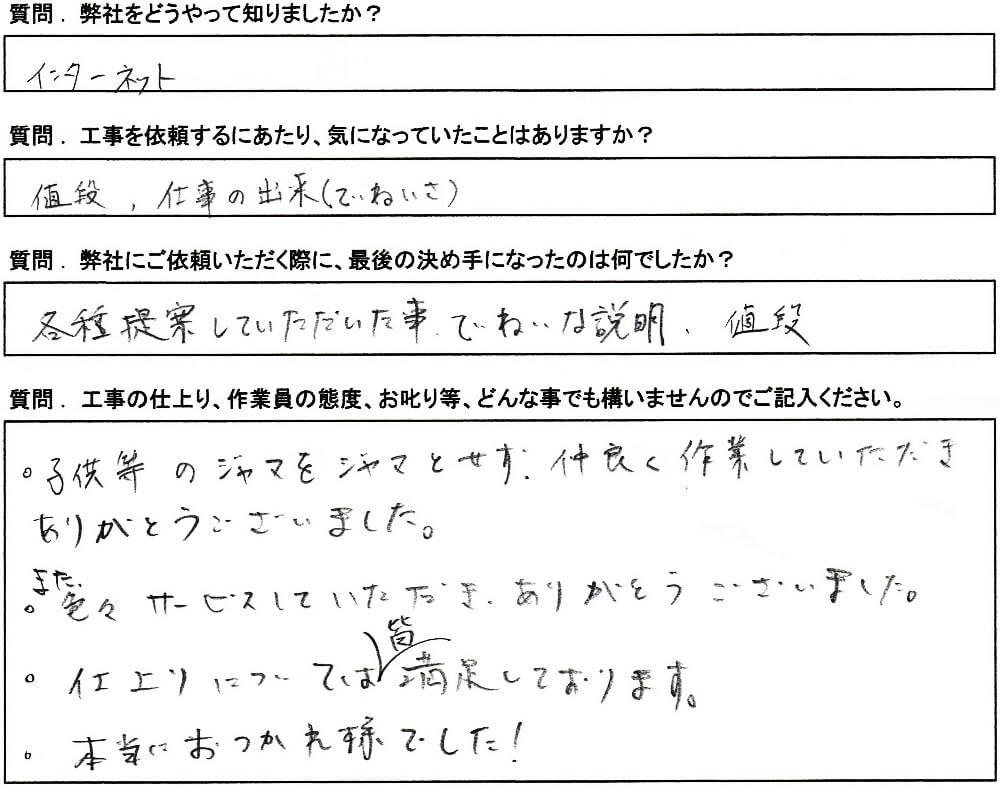 質問．弊社をどうやって知りましたか？
インターネット
質問．工事を依頼するにあたり、気になっていたことはありますか？
値段，仕事の出来(ていねいさ)
質問．弊社にご依頼いただく際に、最後の決め手になったのは何でしたか？
各種提案していただいた事、ていねいな説明、値段
質問．工事の仕上り、作業員の態度、お叱り等、どんな事でも構いませんのでご記入ください。
。子供等のジャマをジャマとせず、仲良く作業していただき
ありがとうございました。
。また、色々サービスしていただき、ありがとうございました。
。仕上りについては皆満足しております。
。本当におつかれ様でした！